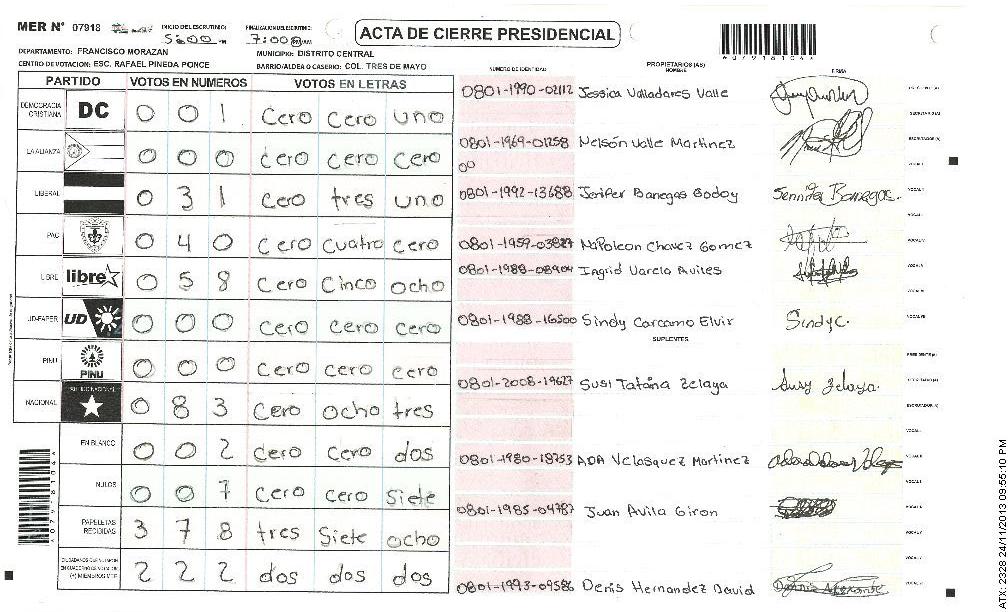 MER Nº 07918
INICIO DEL ESCRUTINIO: 5:00 PM
FINALIZACION DEL ESCRUTINIO: 7:00 PM/AM
ACTA DE CIERRE PRESIDENCIAL
DEPARTAMENTO: FRANCISCO MORAZAN
MUNICIPIO: DISTRITO CENTRAL
CENTRO DE VOTACION: ESC. RAFAEL PINEDA PONCE
BARRIO/ALDEA O CASERIO: COL. TRES DE MAYO
NUMERO DE IDENTIDAD PROPIETARIOS (AS) NOMBRE FIRMA
PARTIDO VOTOS EN NUMEROS VOTOS EN LETRAS
DEMOCRACIA CRISTIANA DC 0 0 1 Cero Cero uno
LA ALIANZA 0 0 0 Cero Cero Cero
LIBERAL 0 3 1 Cero tres uno
PAC 0 4 0 Cero cuatro cero
LIBRE libre 0 5 8 Cero Cinco ocho
UD-FAPER UD 0 0 0 Cero Cero cero
PINU PINU 0 0 0 Cero Cero cero
NACIONAL 0 8 3 Cero ocho tres
EN BLANCO 0 0 2 Cero Cero dos
NULOS 0 0 7 Cero cero Siete
PAPELETAS RECIBIDAS 3 7 8 tres Siete ocho
2 2 2 dos dos dos
0801-1990-02112 Jessica Valladares Valle
0801-1969-01258 Nelsón Valle Martinez
00
0801-1992-13688 Jenifer Banegas Godoy Jennifer Banegas.
Napoleon Chavez Gomez
0801-1988-08904 Ingrid Varela Aviles
0801-1988-16500 Sindy Carcamo Elvir Sindy C.
SUPLENTES
0801-2008-19627 Susi Tatiana Zelaya Susy Zelaya.
0801-1980-18753 ADA Velasquez Martinez
0801-1985-04787 Juan Avila Giron
0801-1993-09586 Denis Hernandez David
ATX: 2328 24/11/2013 09:55:10 PM